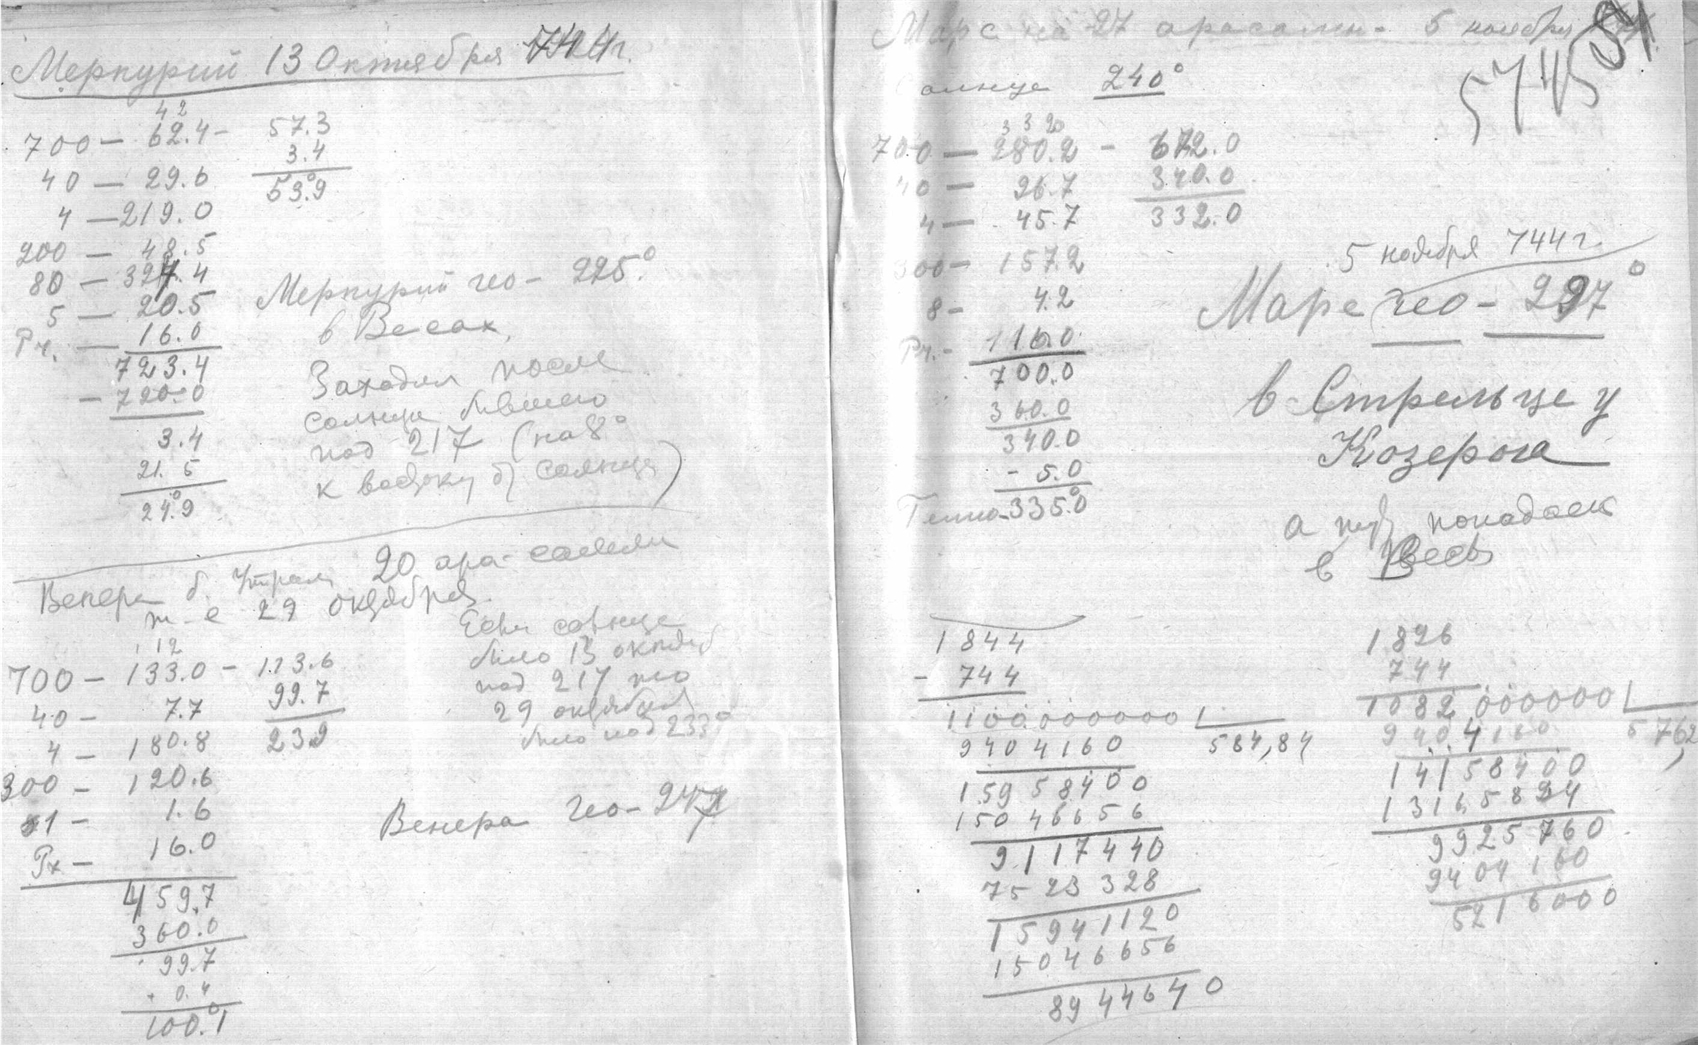 Меркурий 13 Октября 744г.
42
700 — 62.4 — 57.3
3.4
40 — 29.6 53.9°
4 — 219.0
200 — 48.5
80 — 327.4
5 — 20.5
Рч. — 16.0
723.4
— 720.0
3.4
21.5
24.9°
Меркурий гео — 225.°
в Весах,
Заходил после
солнца бывшего
под 217 (на 8°
к востоку от солнца)
Венера б. Утрам 20 ара-самли
т-е 29 октября.
12
700 — 133.0 — 123.6
99.7
40 — 7.7 23.9
4 — 180.8
300 — 120.6
1 — 1.6
Рх — 16.0
459.7
360.0
99.7
0.4
100.°1
Если солнце
было 13 октяб
под 217 то
29 октября
было под 233°
Венера гео — 247
Марс на 27 арасамн - 5 ноября
солнце 240°
5745
332
700 — 280.2 — 672.0
40 — 26.7 340.0
4 — 45.7 332.0
300 — 157.2
8 — 4.2
Рч. — 116.0
700.0
360.0
340.0
- 5.0
335.0°
5 ноября 744г.
Марс гео — 297°
в Стрельце у
Козерога
а попадает
в Весы
1844
- 744
1100.000000 584,84
9404160
15958400
15046656
9117440
7523328
15941120
15046656
8944640
1826
744
1082.000000 5762,
9404160
14158400
13165824
9925760
9404160
5216000